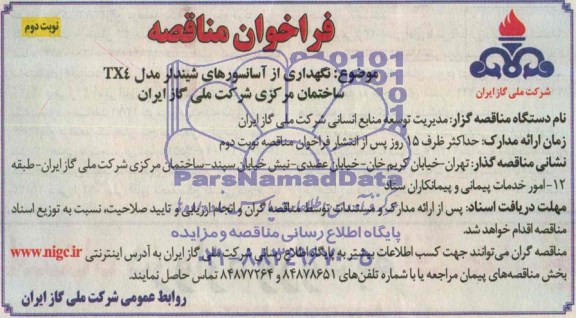 نوبت دوم
فراخوان مناقصه
شرکت ملی گاز ایران
موضوع: نگهداری از آسانسورهای شیندلر مدل TX٤
ساختمان مرکزی شرکت ملی گاز ایران
نام دستگاه مناقصه گزار: مدیریت توسعه منابع انسانی شرکت ملی گاز ایران
زمان ارائه مدارک: حداکثر ظرف ۱۵ روز پس از انتشار فراخوان مناقصه نوبت دوم
نشانی مناقصه گذار: تهران-خیابان کریم خان-خیابان عضدی-نبش خیابان سپند-ساختمان مرکزی شرکت ملی گاز ایران-طبقه
۱۲-امور خدمات پیمانی و پیمانکاران ستاد
مهلت دریافت اسناد: پس از ارائه مدارک و مستندات توسط مناقصه گران و انجام ارزیابی و تایید صلاحیت، نسبت به توزیع اسناد
مناقصه اقدام خواهد شد.
مناقصه گران می‌توانند جهت کسب اطلاعات بیشتر به پایگاه اطلاع رسانی شرکت ملی گاز ایران به آدرس اینترنتی www.nigc.ir
بخش مناقصه‌های پیمان مراجعه یا با شماره تلفن‌های ۸۴۸۷۸۶۵۱ و ۸۴۸۷۷۲۶۴ تماس حاصل نمایند.
روابط عمومی شرکت ملی گاز ایران
ParsNamadData
پایگاه اطلاع رسانی مناقصه و مزایده